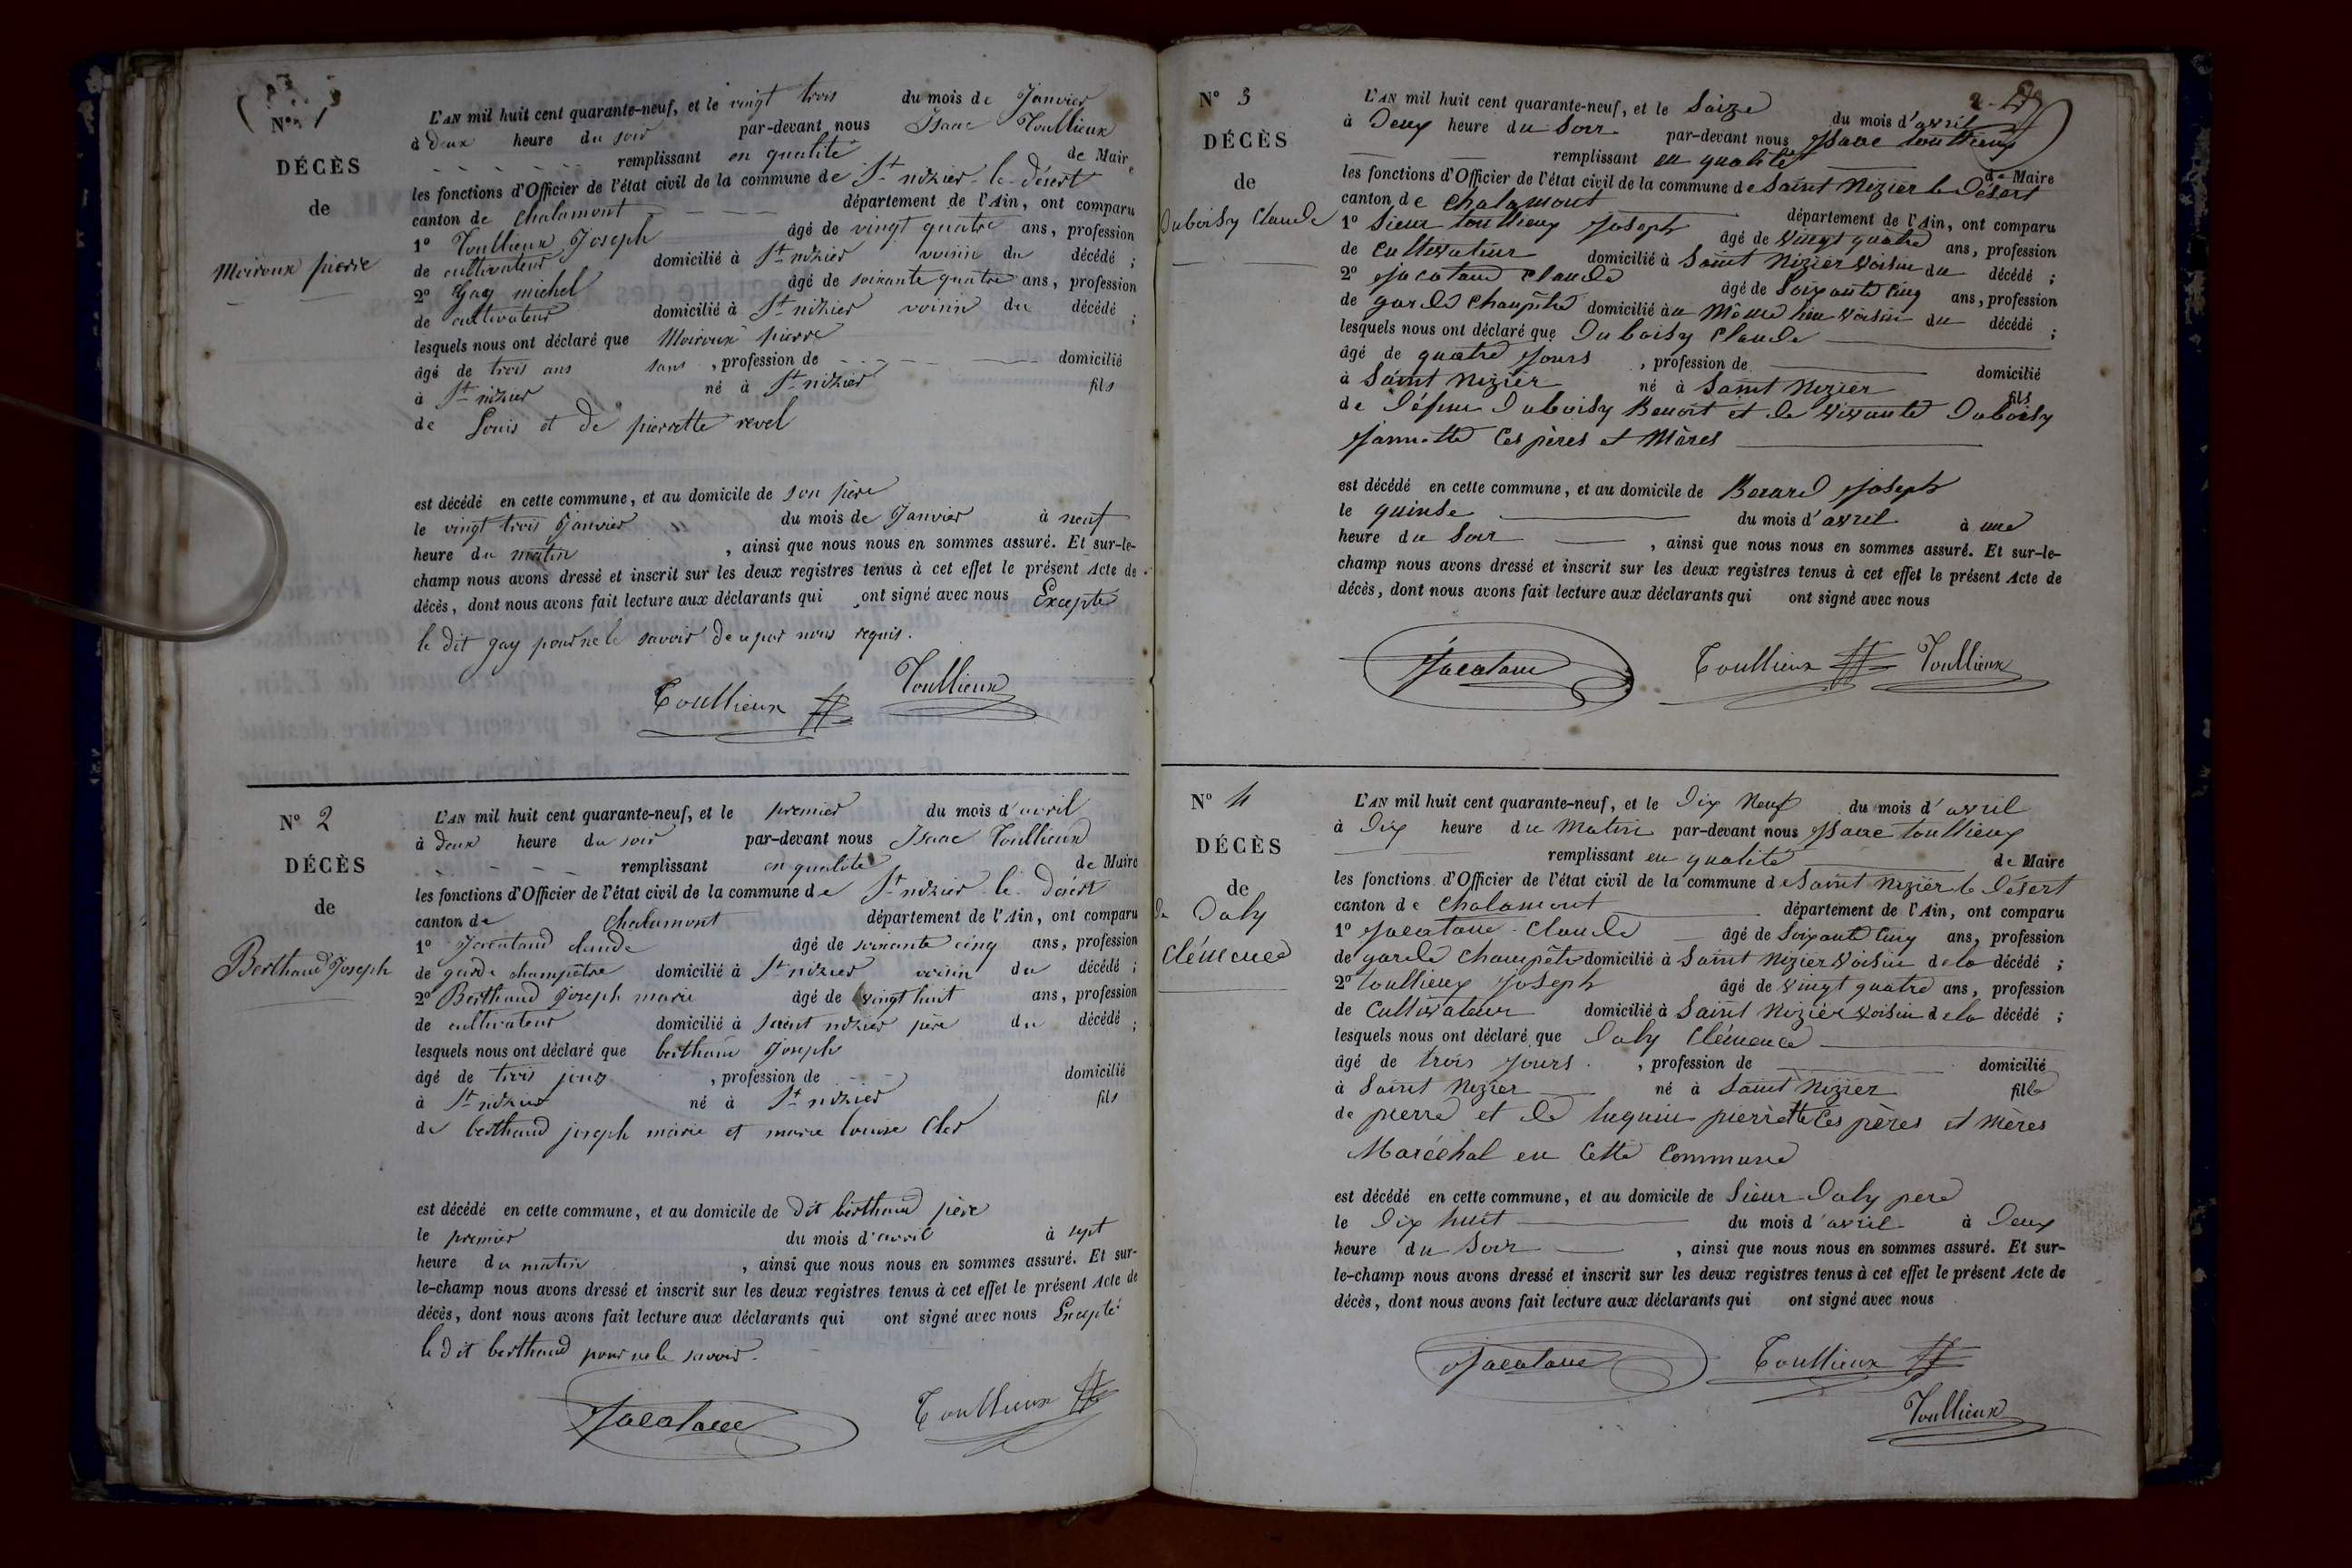 N°
DÉCÈS
de
Moiroux pierre
L'AN mil huit cent quarante-neuf, et le vingt trois du mois de Janvier
à deux heure du soir par-devant nous Isaac Toullieux
remplissant en qualité de Maire
les fonctions d'Officier de l'état civil de la commune de St nizier-le-désert
canton de Chalamont département de l'Ain, ont comparu
1° Toullieux Joseph âgé de vingt quatre ans, profession
de cultivateur domicilié à St nizier voisin du décédé ;
2° Gay michel âgé de soixante quatre ans, profession
de cultivateur domicilié à St nizier voisin du décédé ;
lesquels nous ont déclaré que Moiroux pierre
âgé de trois ans sans , profession de domicilié
à St nizier né à St nizier fils
de Louis et de pierrette revel
est décédé en cette commune, et au domicile de son père
le vingt trois Janvier du mois de Janvier à neuf
heure du matin , ainsi que nous nous en sommes assuré. Et sur-le-
champ nous avons dressé et inscrit sur les deux registres tenus à cet effet le présent Acte de
décès, dont nous avons fait lecture aux déclarants qui ont signé avec nous Excepté
le dit gay pour ne le savoir de ce par nous requis.
Toullieux Toullieux
N° 2
DÉCÈS
de
Berthaud Joseph
L'AN mil huit cent quarante-neuf, et le premier du mois d'avril
à deux heure du soir par-devant nous Isaac Toullieux
remplissant en qualité de Maire
les fonctions d'Officier de l'état civil de la commune de St nizier le Désert
canton de Chalamont département de l'Ain, ont comparu
1° Jacataud claude âgé de soixante cinq ans, profession
de garde champêtre domicilié à St nizier voisin du décédé ;
2° Berthaud Joseph marie âgé de vingt huit ans, profession
de cultivateur domicilié à saint nizier père du décédé ;
lesquels nous ont déclaré que berthaud Joseph
âgé de trois jours , profession de domicilié
à St nizier né à St nizier fils
de berthaud joseph marie et marie louise Cler
est décédé en cette commune, et au domicile de dit berthaud père
le premier du mois d'avril à sept
heure du matin , ainsi que nous nous en sommes assuré. Et sur-
le-champ nous avons dressé et inscrit sur les deux registres tenus à cet effet le présent Acte de
décès, dont nous avons fait lecture aux déclarants qui ont signé avec nous Excepté
le dit berthaud pour ne le savoir.
Jacataud Toullieux
N° 3
DÉCÈS
de
Duboisy Claude
L'AN mil huit cent quarante-neuf, et le Saize du mois d'avril
à Deux heure du Soir par-devant nous Isaac toullieux
remplissant en qualité de Maire
les fonctions d'Officier de l'état civil de la commune de Saint Nizier le Désert
canton de Chalamont département de l'Ain, ont comparu
1° Sieur toullieux Joseph âgé de vingt quatre ans, profession
de Cultivateur domicilié à Saint Nizier Voisin du décédé ;
2° Jacataud Claude âgé de Soixante Cinq ans, profession
de garde Champêtre domicilié au Même lieu Voisin du décédé ;
lesquels nous ont déclaré que Duboisy Claude
âgé de quatre Jours , profession de domicilié
à Saint Nizier né à Saint Nizier fils
de Défun Duboisy Benoit et de Vivante Duboisy
Jannette Ces pères et Mères
est décédé en cette commune, et au domicile de Berard Joseph
le quinse du mois d'avril à une
heure du Soir , ainsi que nous nous en sommes assuré. Et sur-le-
champ nous avons dressé et inscrit sur les deux registres tenus à cet effet le présent Acte de
décès, dont nous avons fait lecture aux déclarants qui ont signé avec nous
Jacataud Toullieux Toullieux
N° 4
DÉCÈS
de
Daly
Clémence
L'AN mil huit cent quarante-neuf, et le Dix Neuf du mois d'avril
à Dix heure du Matin par-devant nous Isaac toullieux
remplissant en qualité de Maire
les fonctions d'Officier de l'état civil de la commune de Saint Nizier le Désert
canton de Chalamont département de l'Ain, ont comparu
1° Jacataud Claude âgé de Soixante Cinq ans, profession
de garde Champêtre domicilié à Saint Nizier Voisin de la décédé ;
2° toullieux Joseph âgé de Vingt quatre ans, profession
de Cultivateur domicilié à Saint Nizier Voisin de la décédé ;
lesquels nous ont déclaré que Daly Clémence
âgé de trois Jours , profession de domicilié
à Saint Nizier né à Saint Nizier fille
de pierre et de luquin pierrette Ces pères et Mères
Maréchal en Cette Commune
est décédé en cette commune, et au domicile de Sieur Daly pere
le Dix huit du mois d'avril à Deux
heure du Soir , ainsi que nous nous en sommes assuré. Et sur-
le-champ nous avons dressé et inscrit sur les deux registres tenus à cet effet le présent Acte de
décès, dont nous avons fait lecture aux déclarants qui ont signé avec nous
Jacataud Toullieux
Toullieux